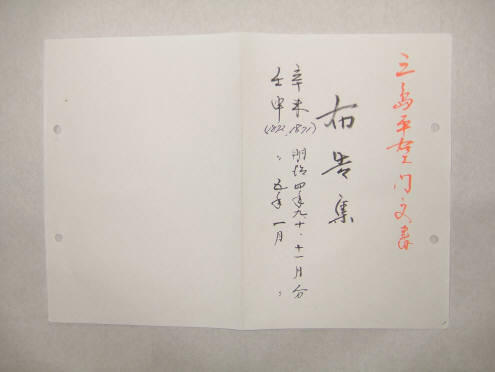 三島平左ヱ門文書
布告集
辛未 明治四年九、十、十一月分
壬申 〃 五年一月 〃
(1872, 1871)